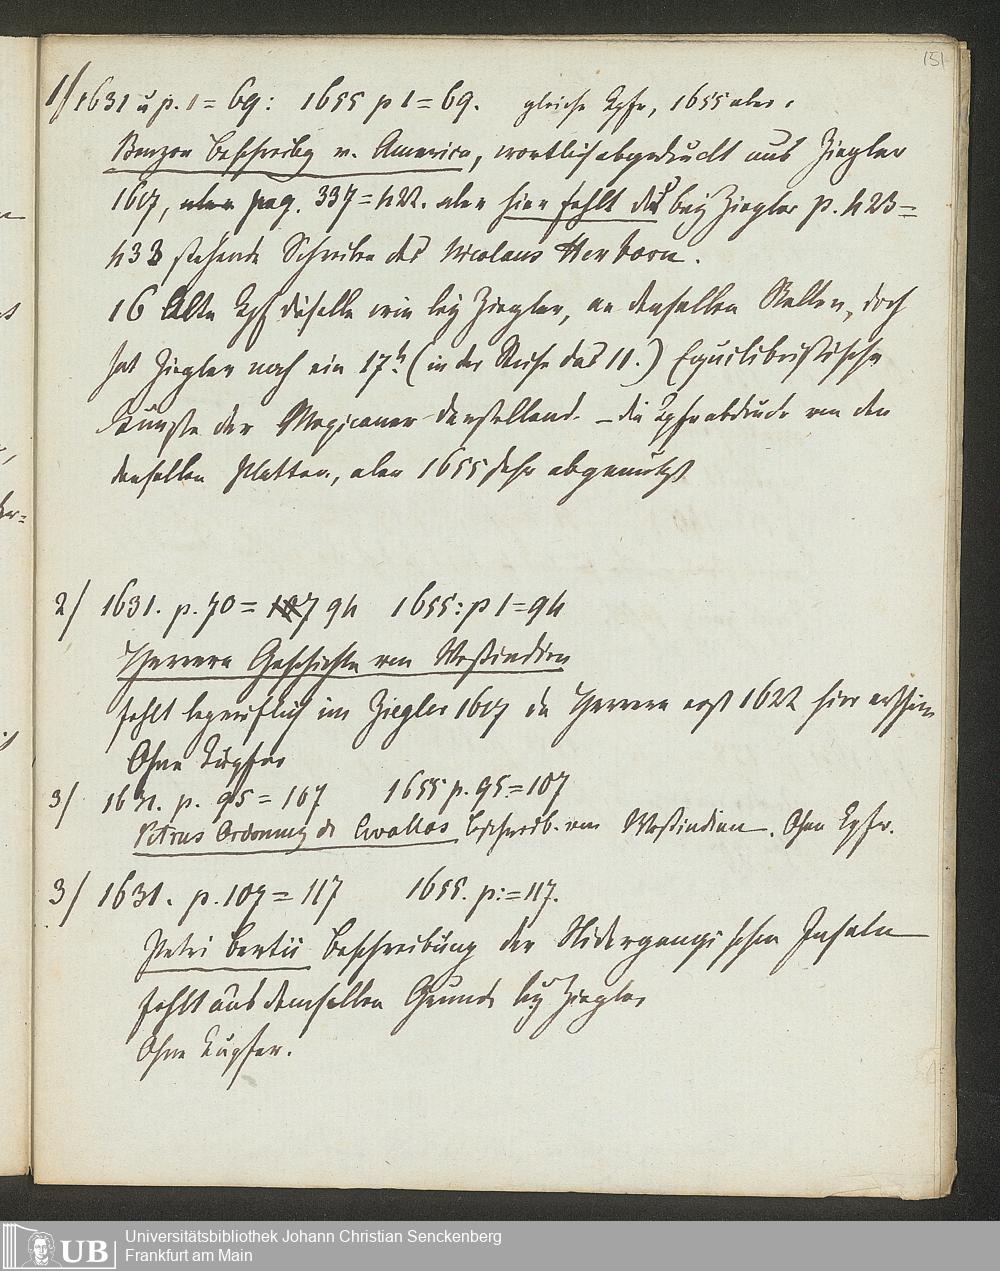 151
1/ 1631 u p. 1 = 69: 1655 p 1 = 69. gleiche Kpfr, 1655 aber.
Benzon Beschreibg v. America, wortlich abgedruckt aus Ziegler
1617, aber pag. 337 = 422. aber hier fehlt das bey Ziegler p. 423=
433 stehende Schreiben des Nicolaus Herborn.
16 Alte Kpf dieselbe wie bey Ziegler, an denselben Stellen, doch
hat Ziegler noch ein 17t (in der Reihe das 11.) Equilibristische
Künste der Mexicaner darstellend. – die Kpfrabdrucke von den
denselben Platten, aber 1655 sehr abgenutzt
2/ 1631. p. 70 = 107 94 1655: p 1 = 94
Herrera Geschichte von Westindien
fehlt begreiflich im Ziegler 1617 da Herrera erst 1622 hier erschien
Ohne Kupfer
3/ 1631. p. 95 = 107 1655 p. 95 = 107
Petrus Ordonnez de Cevallos Beschreib. von Westindien. Ohne Kpfr.
3/ 1631. p. 107 = 117 1655. p. = 117.
Petri Bertii Beschreibung der Nidergangischen Inseln
fehlt aus demselben Grunde bey Ziegler
Ohne Kupfer.
UB Universitätsbibliothek Johann Christian Senckenberg
Frankfurt am Main